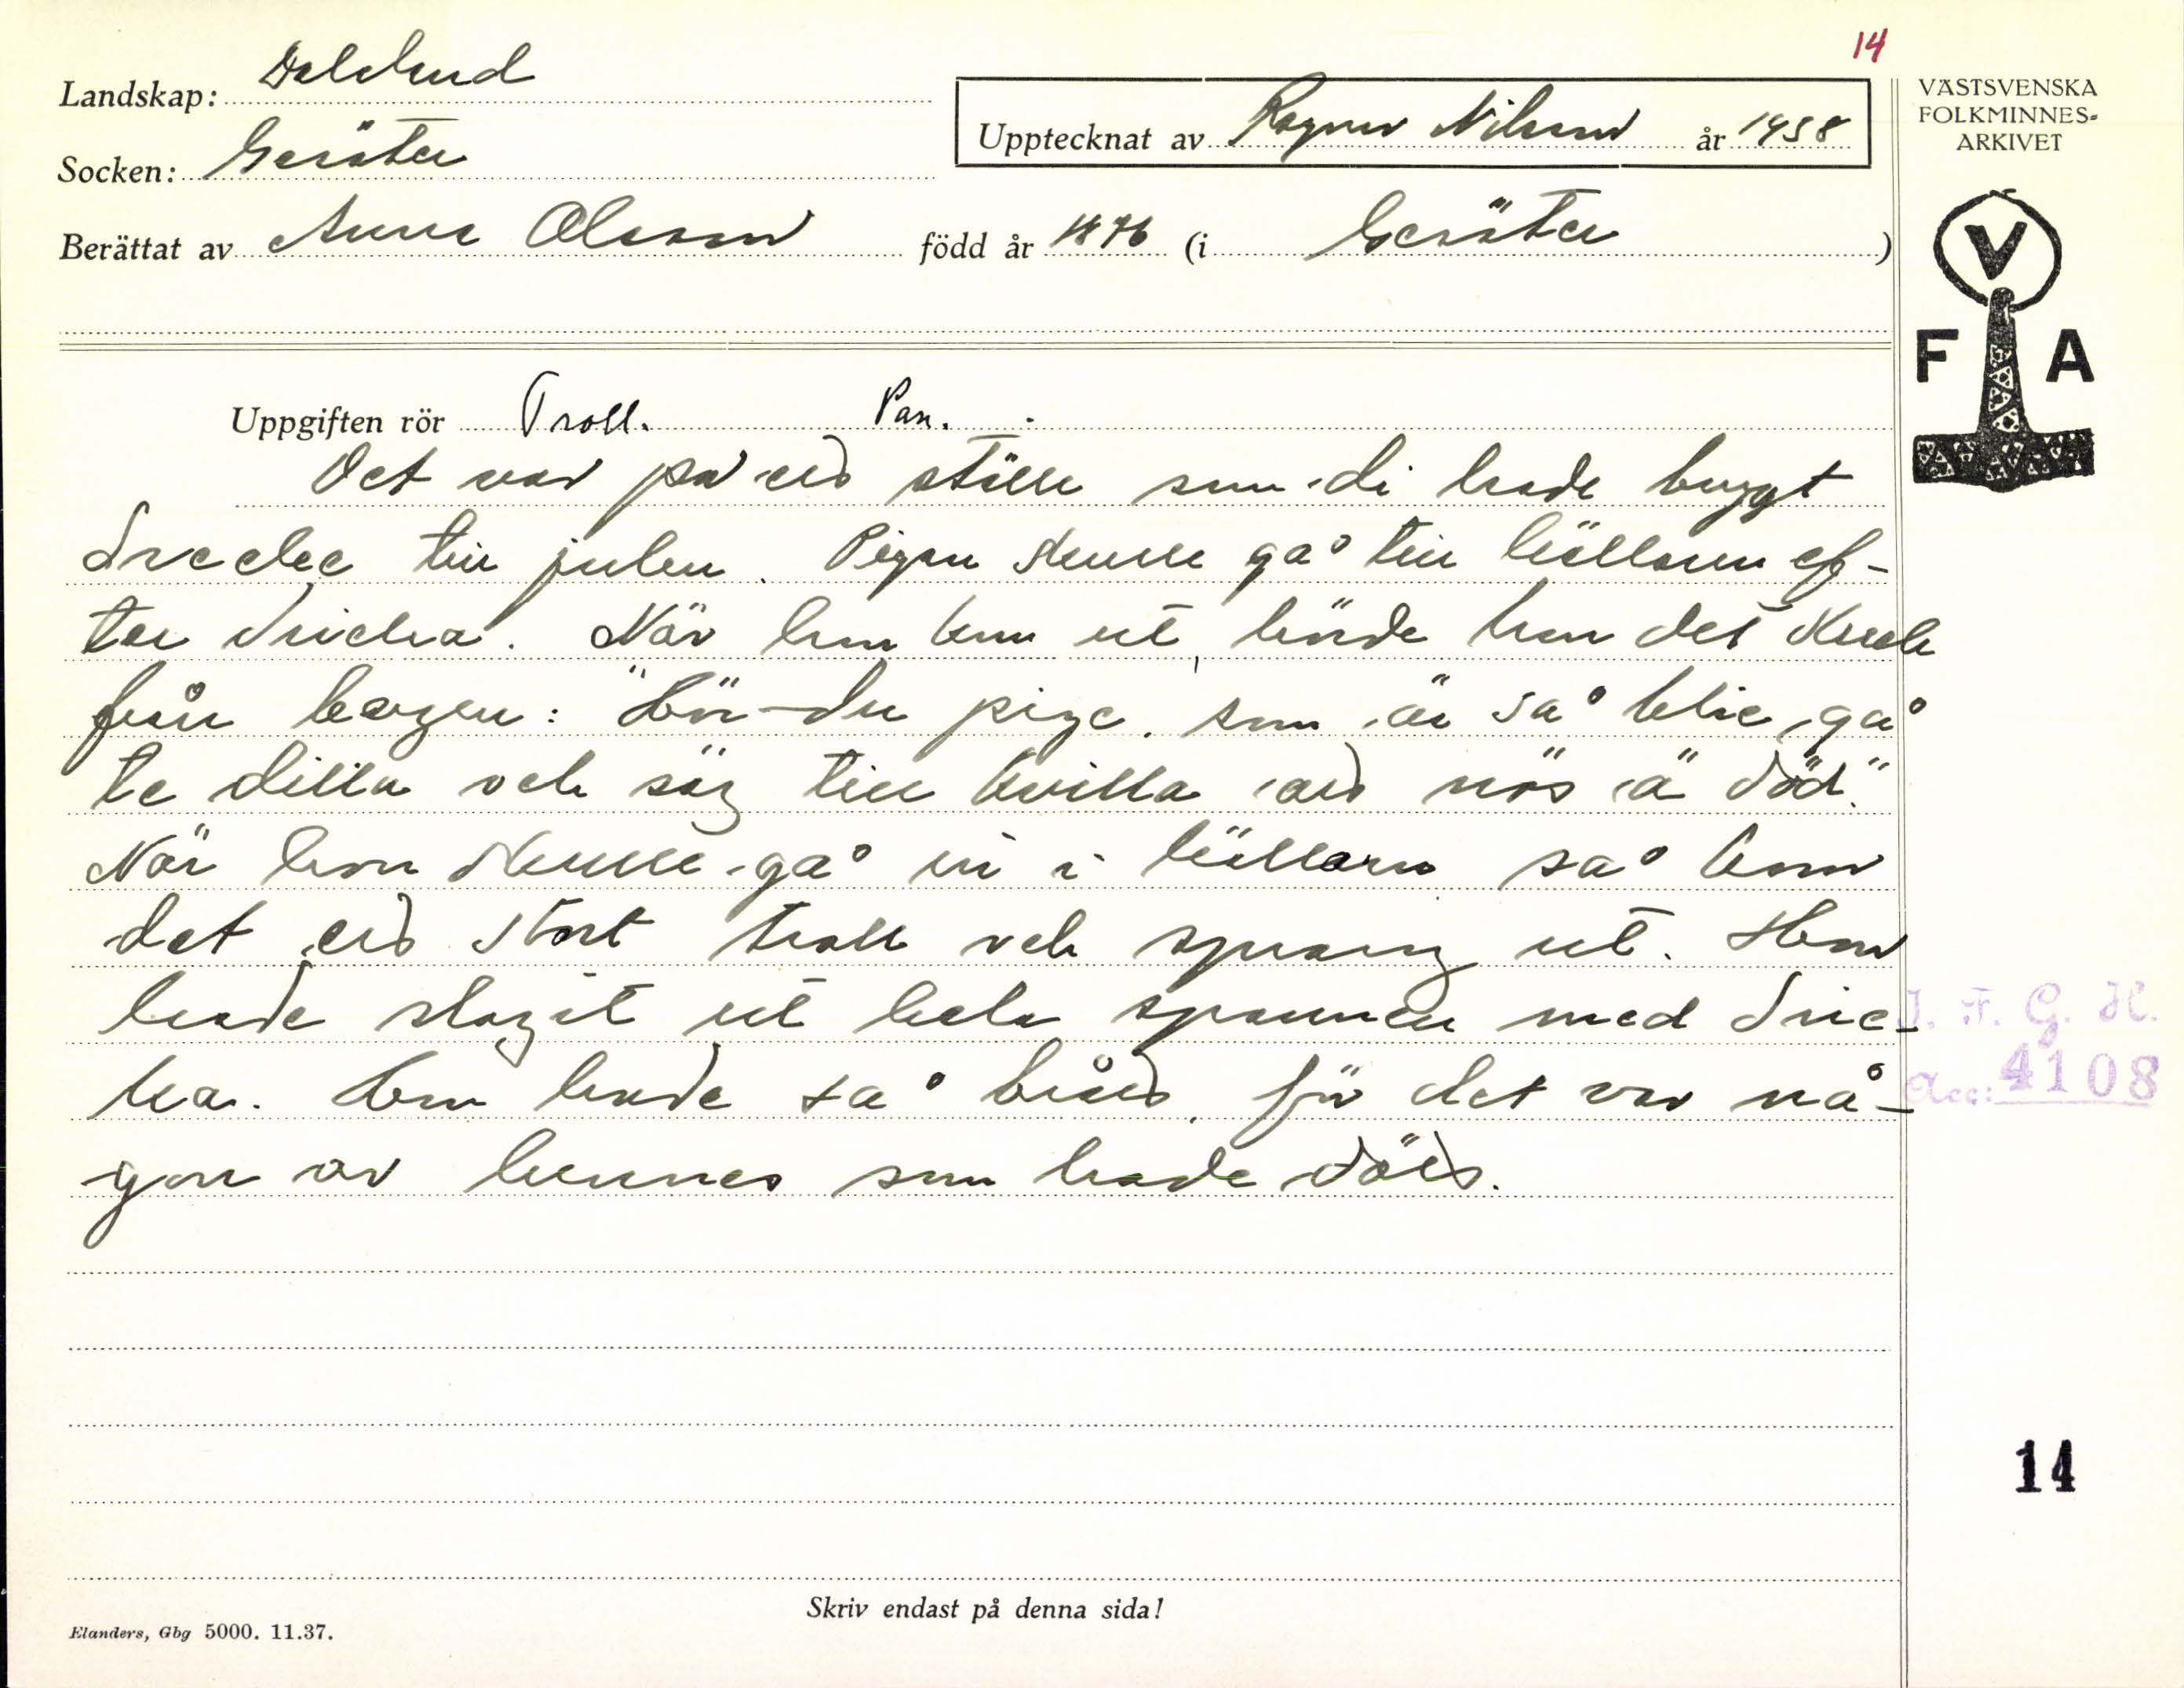 14
Landskap: Dalsland
Upptecknat av Ragnar Nilsson år 1938
VÄSTSVENSKA
FOLKMINNES-
ARKIVET
Socken: Gesäter
Berättat av Anna Olsson född år 1876 (i Gesäter)
V
F A
Uppgiften rör Troll. Pan.
Det var på ett ställe som di hade bryggt
dricke till julen. Pigan skulle gå till källaren ef-
ter dricka. När hon kom ut, hörde hon det skrek
från bergen: "Hör du pige, som är så gå
te och säg till att nös ä död."
När hon skulle gå in i källarn så kom
det ett stort troll och sprang ut. Hon
hade slagit ut hela spannen med dric-
ka. Hon hade så brått, för det var nå-
gon av hennes som hade dött.
J. F. G. H.
Acc: 4108
14
Skriv endast på denna sida!
Elanders, Gbg 5000. 11.37.